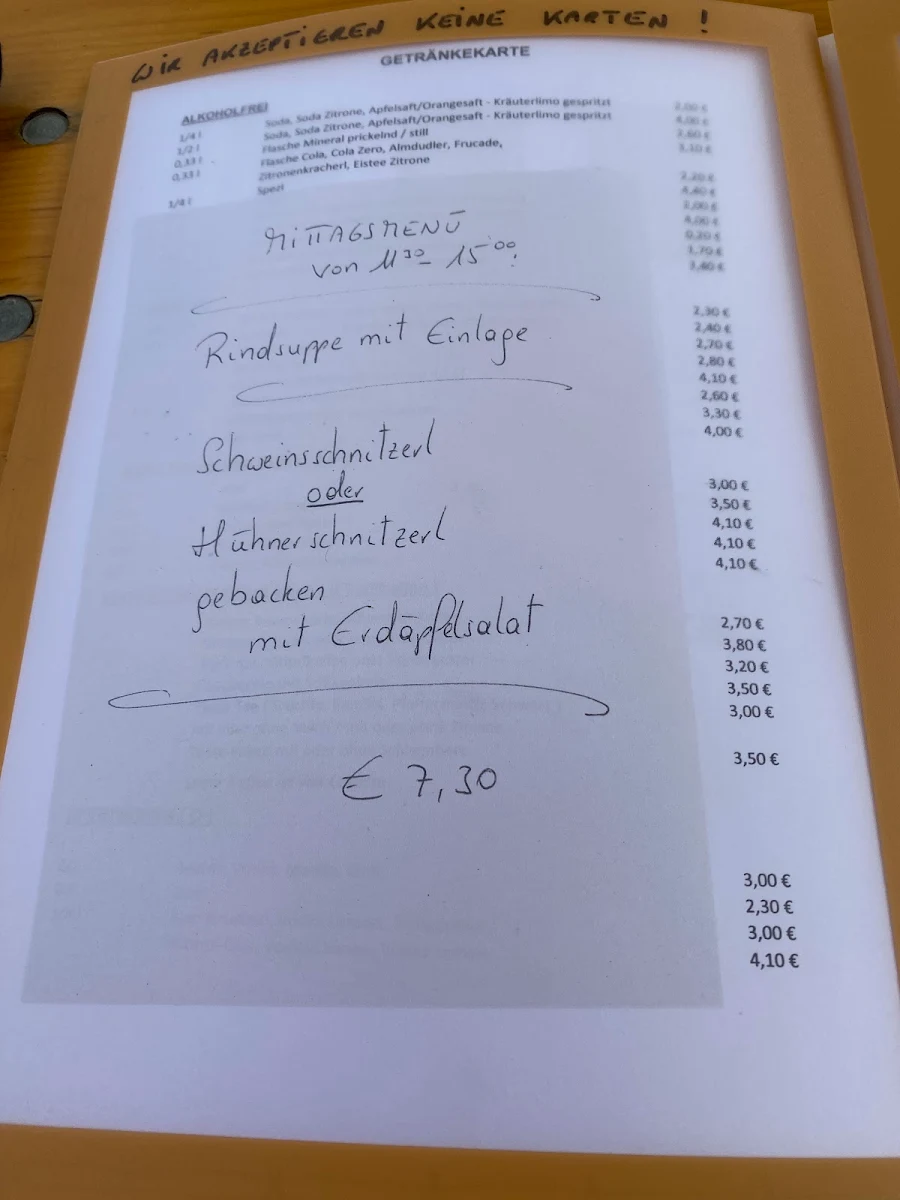 WIR AKZEPTIEREN KEINE KARTEN !
GETRÄNKEKARTE
ALKOHOLFREI
1/4 l Soda, Soda Zitrone, Apfelsaft/Orangesaft - Kräuterlimo gespritzt 2,00 €
1/2 l Soda, Soda Zitrone, Apfelsaft/Orangesaft - Kräuterlimo gespritzt 4,00 €
0,33 l Flasche Mineral prickelnd / still 2,60 €
0,33 l Flasche Cola, Cola Zero, Almdudler, Frucade, 3,10 €
Zitronenkracherl, Eistee Zitrone
1/4 l Spezi 2,20 €
4,40 €
2,00 €
4,00 €
0,20 €
1,70 €
3,40 €
MITTAGSMENÜ
von 11³⁰- 15⁰⁰!
Rindsuppe mit Einlage
2,30 €
2,40 €
2,70 €
2,80 €
4,10 €
2,60 €
3,30 €
4,00 €
Schweinsschnitzerl
oder
Hühnerschnitzerl
gebacken
mit Erdäpfelsalat
3,00 €
3,50 €
4,10 €
4,10 €
4,10 €
2,70 €
3,80 €
3,20 €
3,50 €
3,00 €
3,50 €
€ 7,30
3,00 €
2,30 €
3,00 €
4,10 €